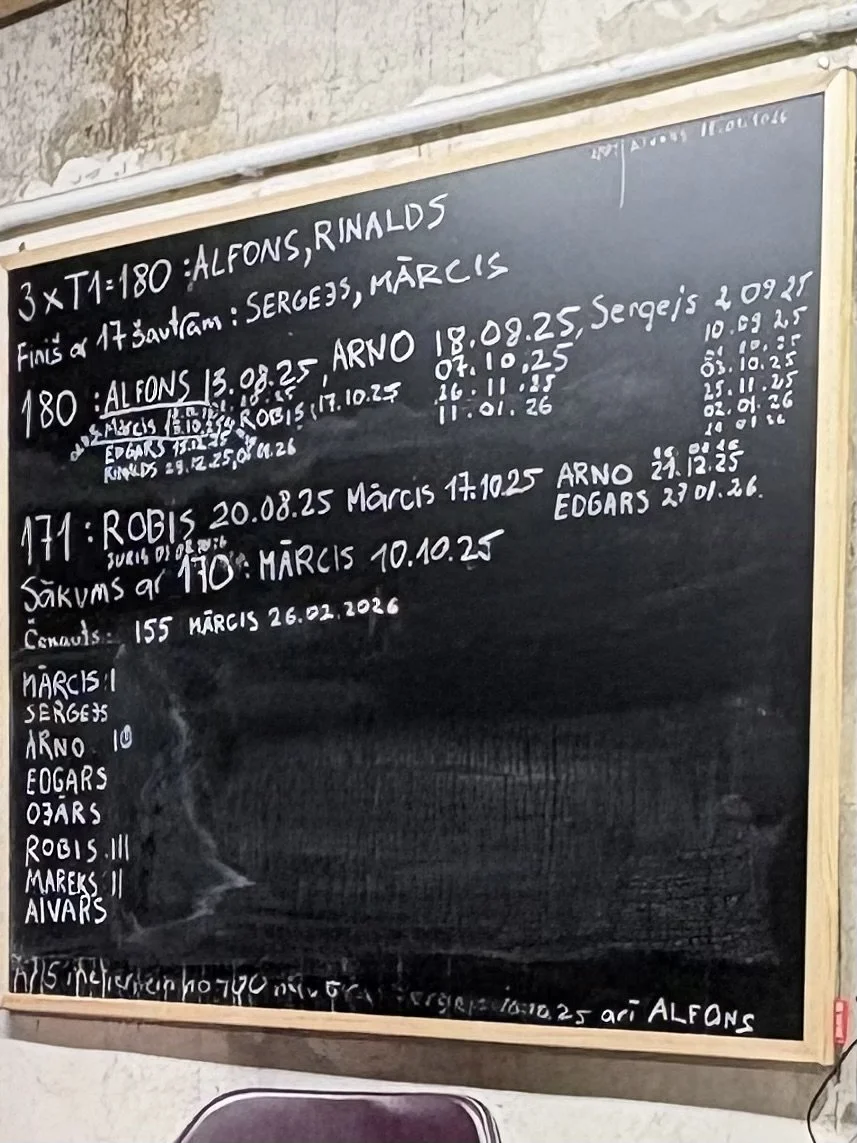 18.01.2026
3 x T1=180 : ALFONS, RINALDS
Finiš ar 17 šautrām : SERGEJS, MĀRCIS
180 : ALFONS 13.08.25, ARNO 18.08.25, Sergejs 2 09 25
07.10.25 10.09 25
26.11.25 03.10.25
11.01.26 25.11.25
02.01.26
Mārcis ROBIS 17.10.25
EDGARS 13.12.25
RINALDS 29.12.25, 01.26
171 : ROBIS 20.08.25 Mārcis 17.10.25 ARNO 21.12.25
EDGARS 27 01.26.
JURIS
Sākums ar 170 : MĀRCIS 10.10.25
155 MĀRCIS 26.02.2026
MĀRCIS I
SERGEJS
ARNO I
EDGARS
OJĀRS
ROBIS III
MAREKS II
AIVARS
10.10.25 arī ALFONS